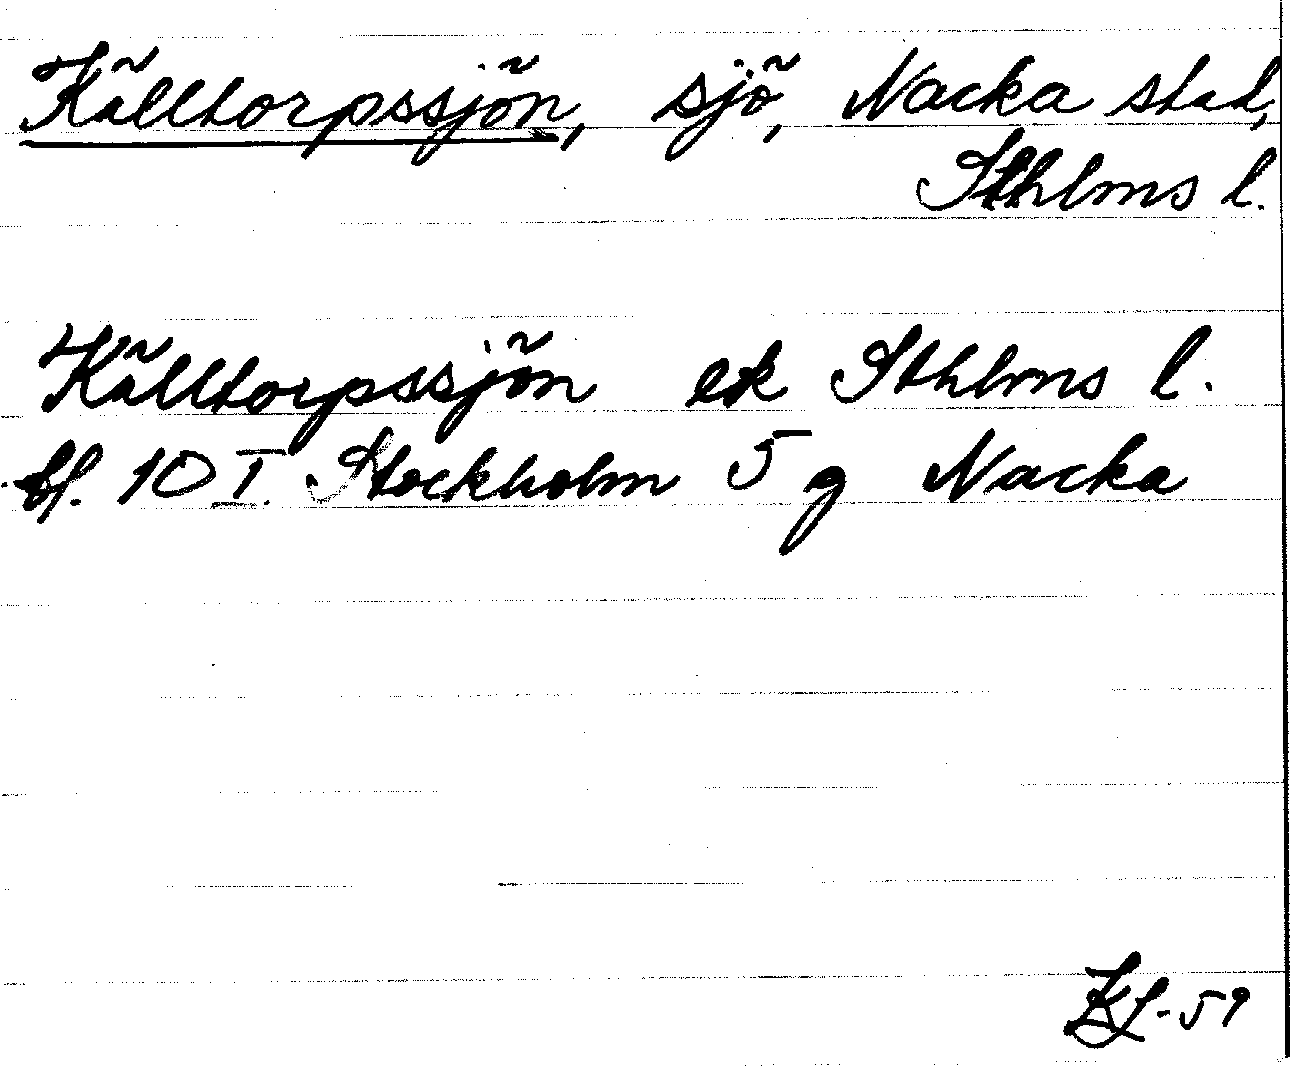 Källtorpssjön, sjö, Nacka stad,
Sthlms l.
Källtorpssjön ek Sthlms l.
bl. 10 I. Stockholm 5 g Nacka
-59